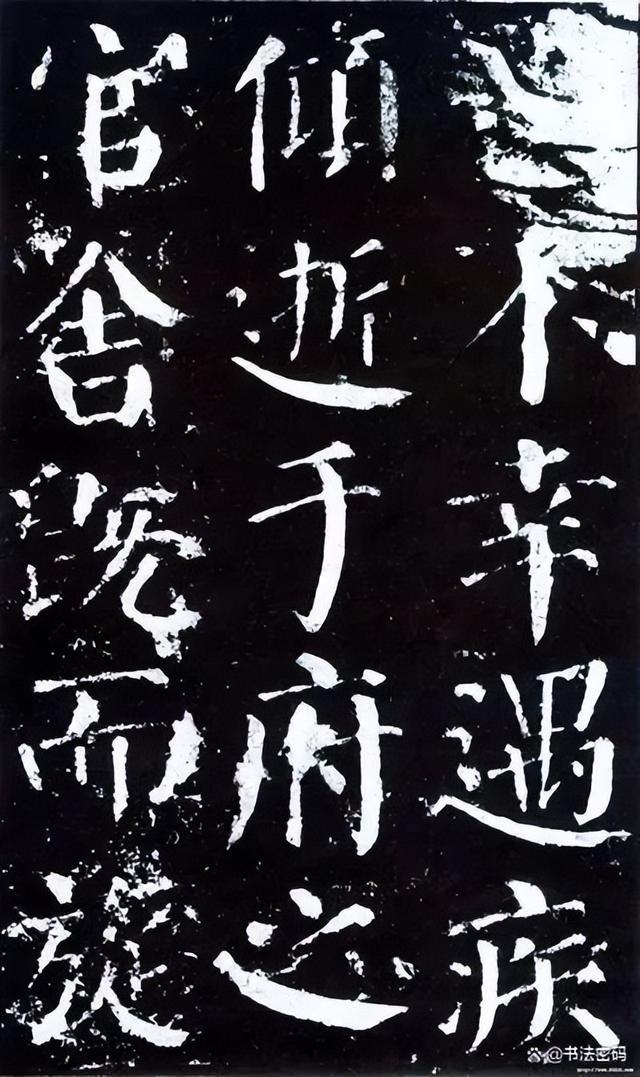 不幸遇疾
倾逝于府之
官舍既而旋
@书法密码